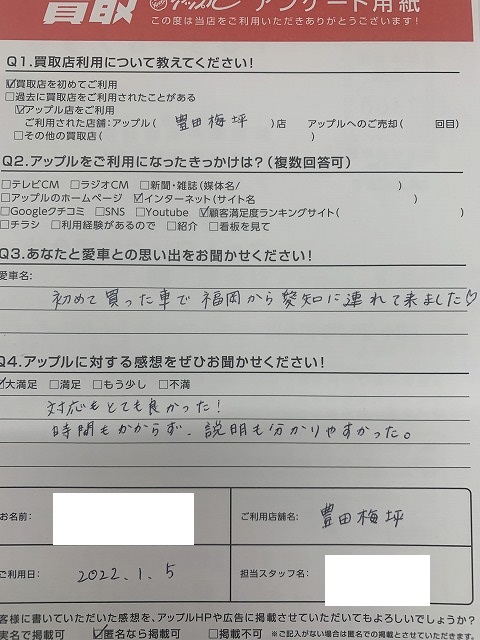 買取 アップル アンケート用紙
この度は当店をご利用いただきありがとうございます！
Q1.買取店利用について教えてください！
☑買取店を初めてご利用
□過去に買取店をご利用されたことがある
☑アップル店をご利用
ご利用された店舗:アップル( 豊田梅坪 )店 アップルへのご売却( 回目)
□その他の買取店( )
Q2.アップルをご利用になったきっかけは？(複数回答可)
□テレビCM □ラジオCM □新聞・雑誌(媒体名/ )
□アップルのホームページ ☑インターネット(サイト名 )
□Googleクチコミ □SNS □Youtube ☑顧客満足度ランキングサイト( )
□チラシ □利用経験があるので □紹介 □看板を見て
Q3.あなたと愛車との思い出をお聞かせください！
愛車名:
初めて買った車で福岡から愛知に連れて来ました♡
Q4.アップルに対する感想をぜひお聞かせください！
☑大満足 □満足 □もう少し □不満
対応もとても良かった！
時間もかからず、説明も分かりやすかった。
お名前:
ご利用店舗名: 豊田梅坪
ご利用日: 2022.1.5
担当スタッフ名:
客様に書いていただいた感想を、アップルHPや広告に掲載させていただいてもよろしいでしょうか？
実名で掲載可 ☑匿名なら掲載可 □掲載不可 ※ご記入がない場合は匿名での掲載とさせていただきます。